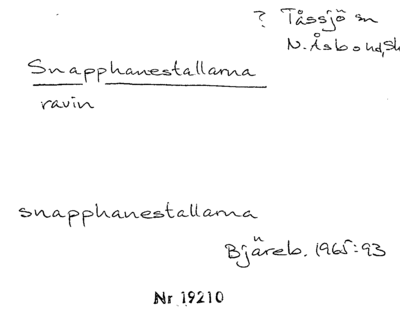 ? Tåssjö sn
N. Åsbo hd, Sk
Snapphanestallarna
ravin
snapphanestallarna
Bjäreb. 1965:93
Nr 19210